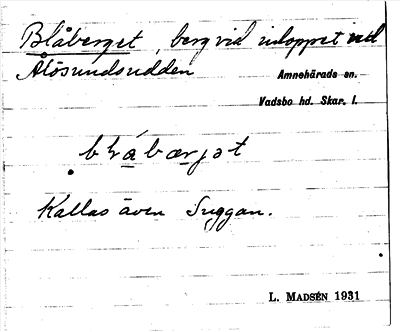 Blåberget, berg vid inloppet vid
Ålösundsudden
Amnehärads sn.
Vadsbo hd. Skar. l.
blåbærjət
Kallas även Suggan.
L. MADSÉN 1931